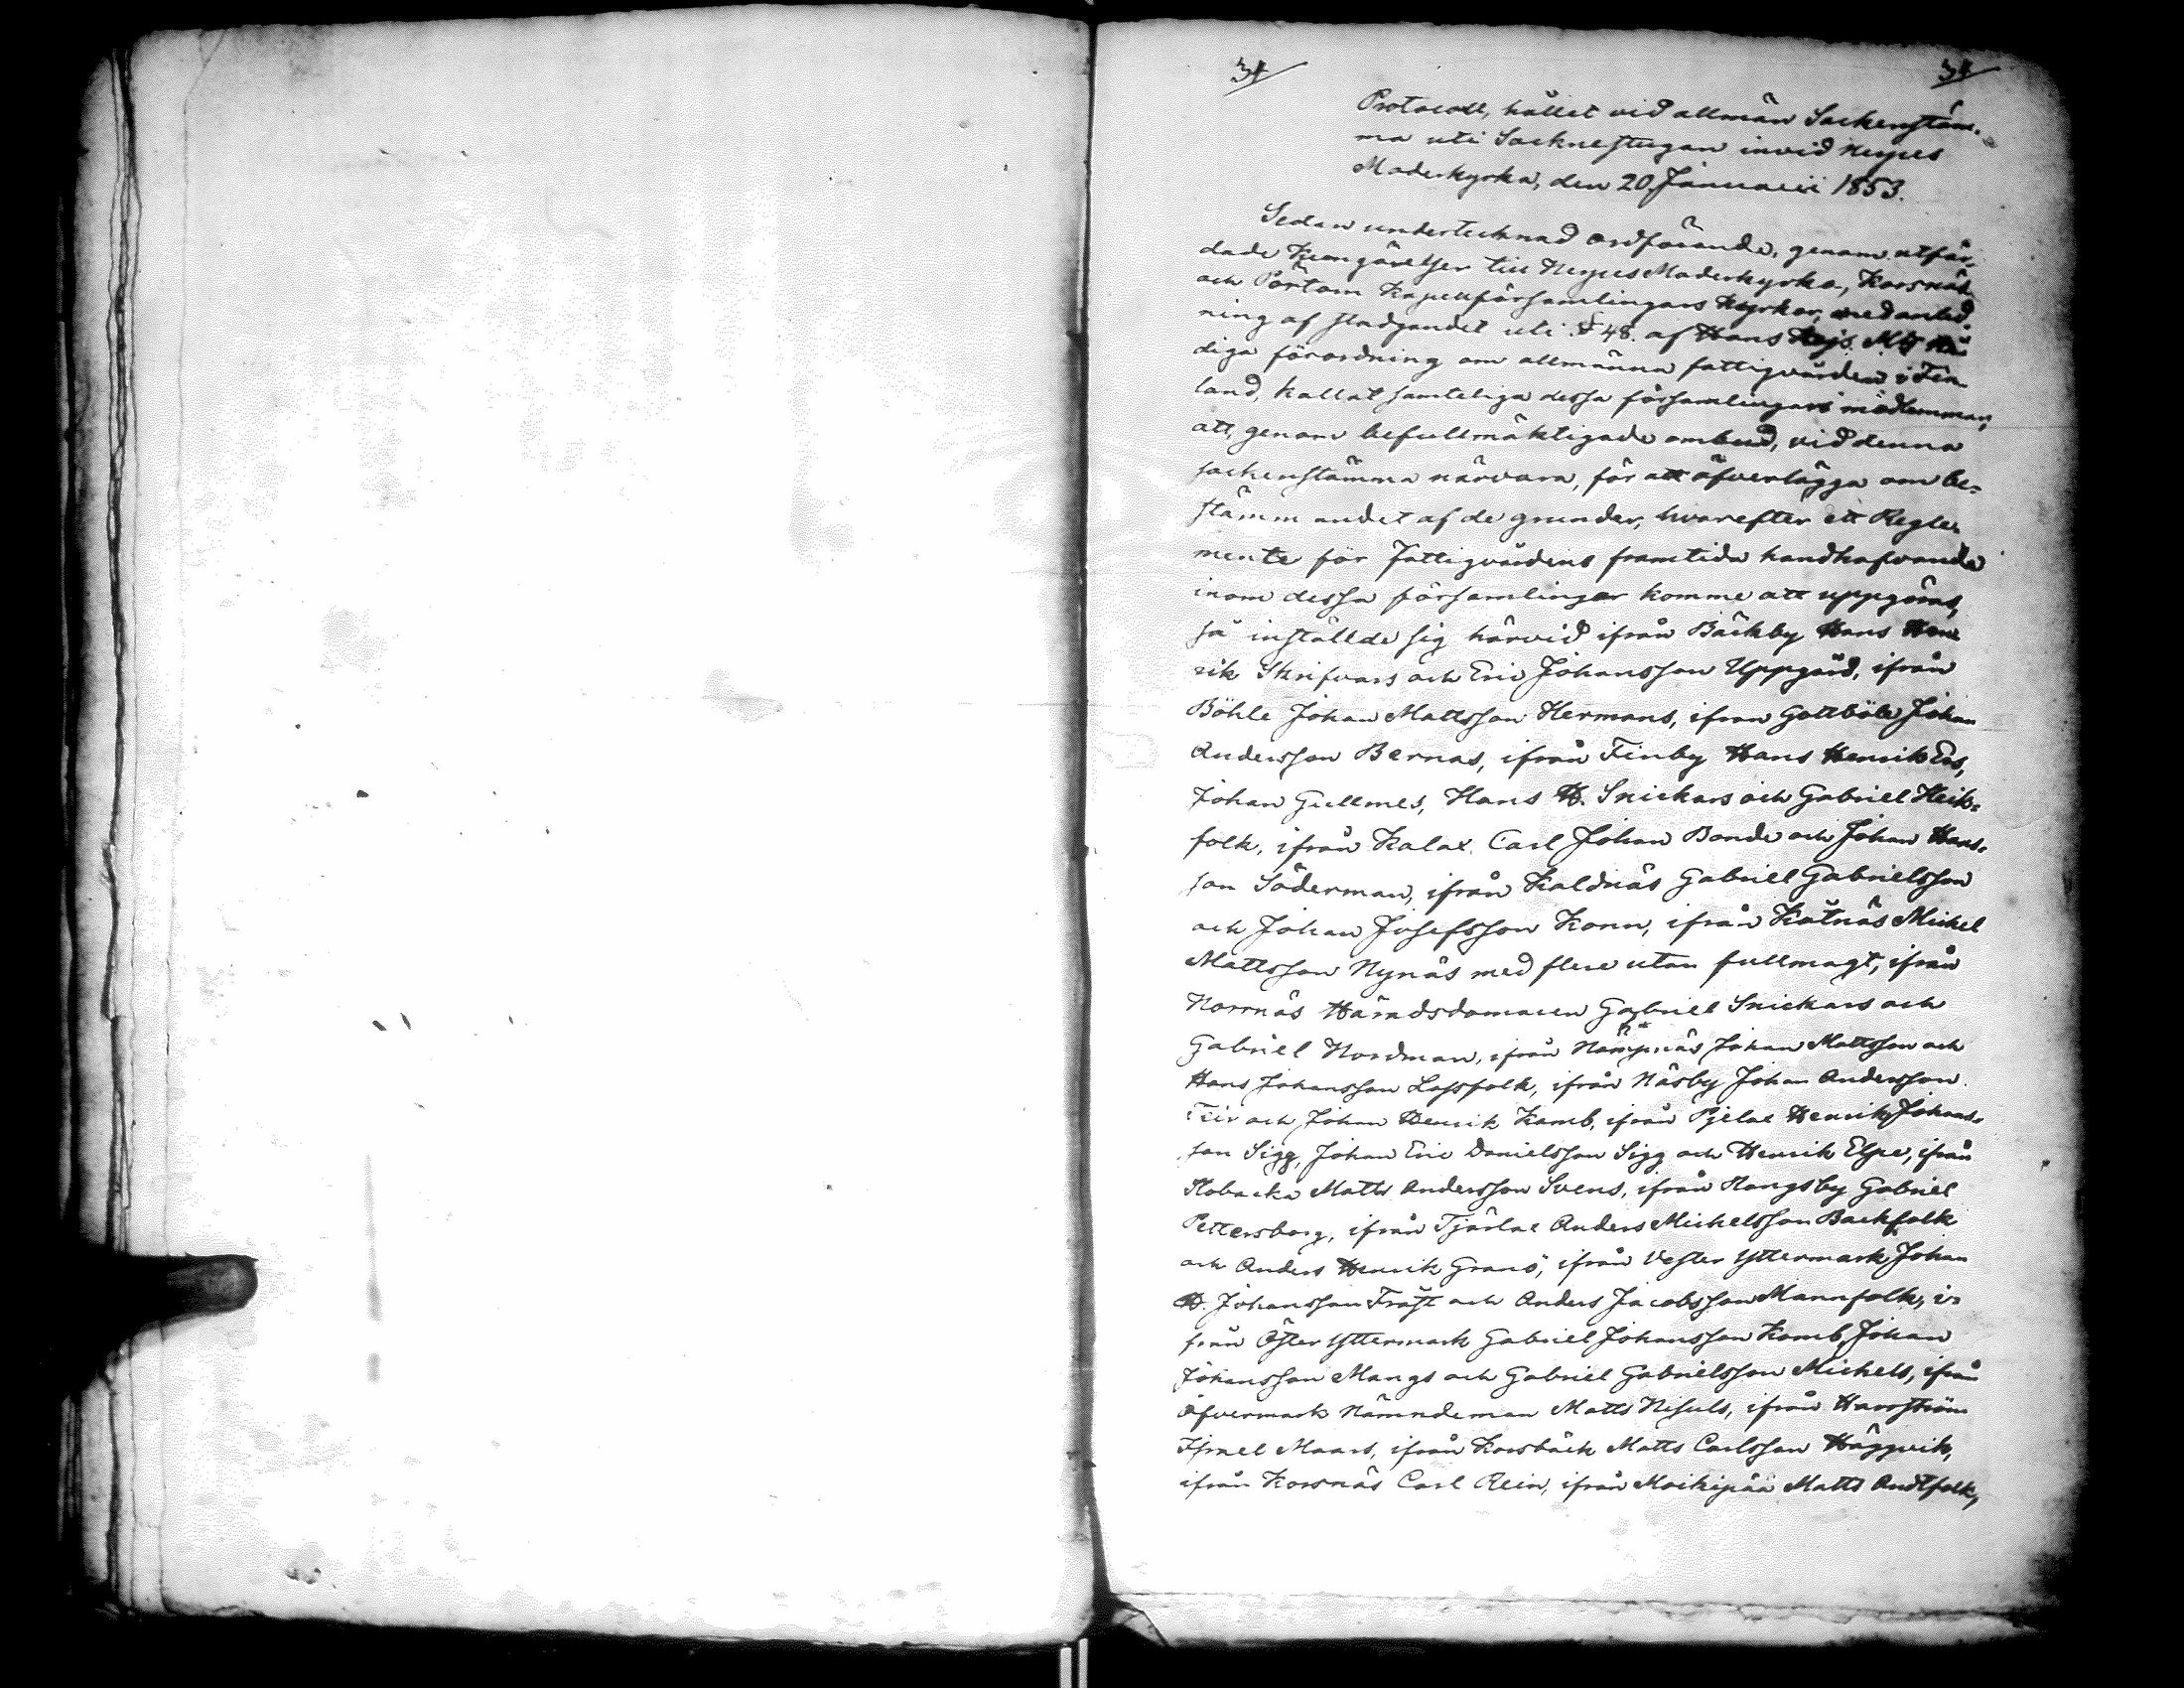 34 34
Protocoll, hållet vid allmän Sockenstäm-
ma uti Socknestugan invid Nerpes
Moderkyrka, den 20 Januarii 1853.
Sedan undertecknad ordförande, genom utfär-
dade Kungörelser till Nerpes Moderkyrka, Korsnäs
och Pörtom Kapellförsamlingars Kyrkor, med anled-
ning af stadgandet uti § 48. af Hans Kejs. Mts Nå-
diga förordning om allmänna fattigvården i Fin-
land, kallat samteliga dessa församlingars medlemmar,
att, genom befullmäktigade ombud, vid denna
sockenstämma närvara, för att öfverlägga om be-
stämmandet af de grunder, hvarefter ett Regle-
mente för Fattigvårdens framtida handhafvande
inom dessa församlingar komme att uppgöras,
så inställde sig härvid ifrån Bäckby Hans Hen-
rik Skrifvars och Eric Johansson Uppgård, ifrån
Böhle Johan Mattsson Hermans, ifrån Gottböle Johan
Andersson Bernas, ifrån Finby Hans Henrik Ers,
Johan Gullmes, Hans H. Snickars och Gabriel Heik-
folk, ifrån Kalax Carl Johan Bonde och Johan Hans-
son Söderman, ifrån Kaldnäs Gabriel Gabrielsson
och Johan Josefsson Konn, ifrån Kåtnäs Mickel
Mattsson Nynäs med flere utan fullmagt, ifrån
Norrnäs Häradsdomaren Gabriel Snickars och
Gabriel Nordman, ifrån Nämpnäs Johan Mattsson och
Hans Johansson Lassfolk, ifrån Näsby Johan Andersson
Teir och Johan Henrik Kamb, ifrån Pjelax Henrik Johans-
son Sigg, Johan Eric Danielsson Sigg och Henrik Elpe, ifrån
Nobacka Matts Andersson Svens, ifrån Rangsby Gabriel
Pettersborg, ifrån Tjärlax Anders Michelsson Backfolk
och Anders Henrik Granö, ifrån Vester Yttermark Johan
H. Johansson Träst och Anders Jacobsson Mannfolk, i-
från Öster Yttermark Gabriel Johansson Kamb, Johan
Johansson Mangs och Gabriel Gabrielsson Michels, ifrån
Öfvermark Nämndeman Matts Nisuls, ifrån Harrström
Israel Maars, ifrån Korsbäck Matts Carlsson Häggvik,
ifrån Korsnäs Carl Rein, ifrån Moikipää Matts Andtfolk,